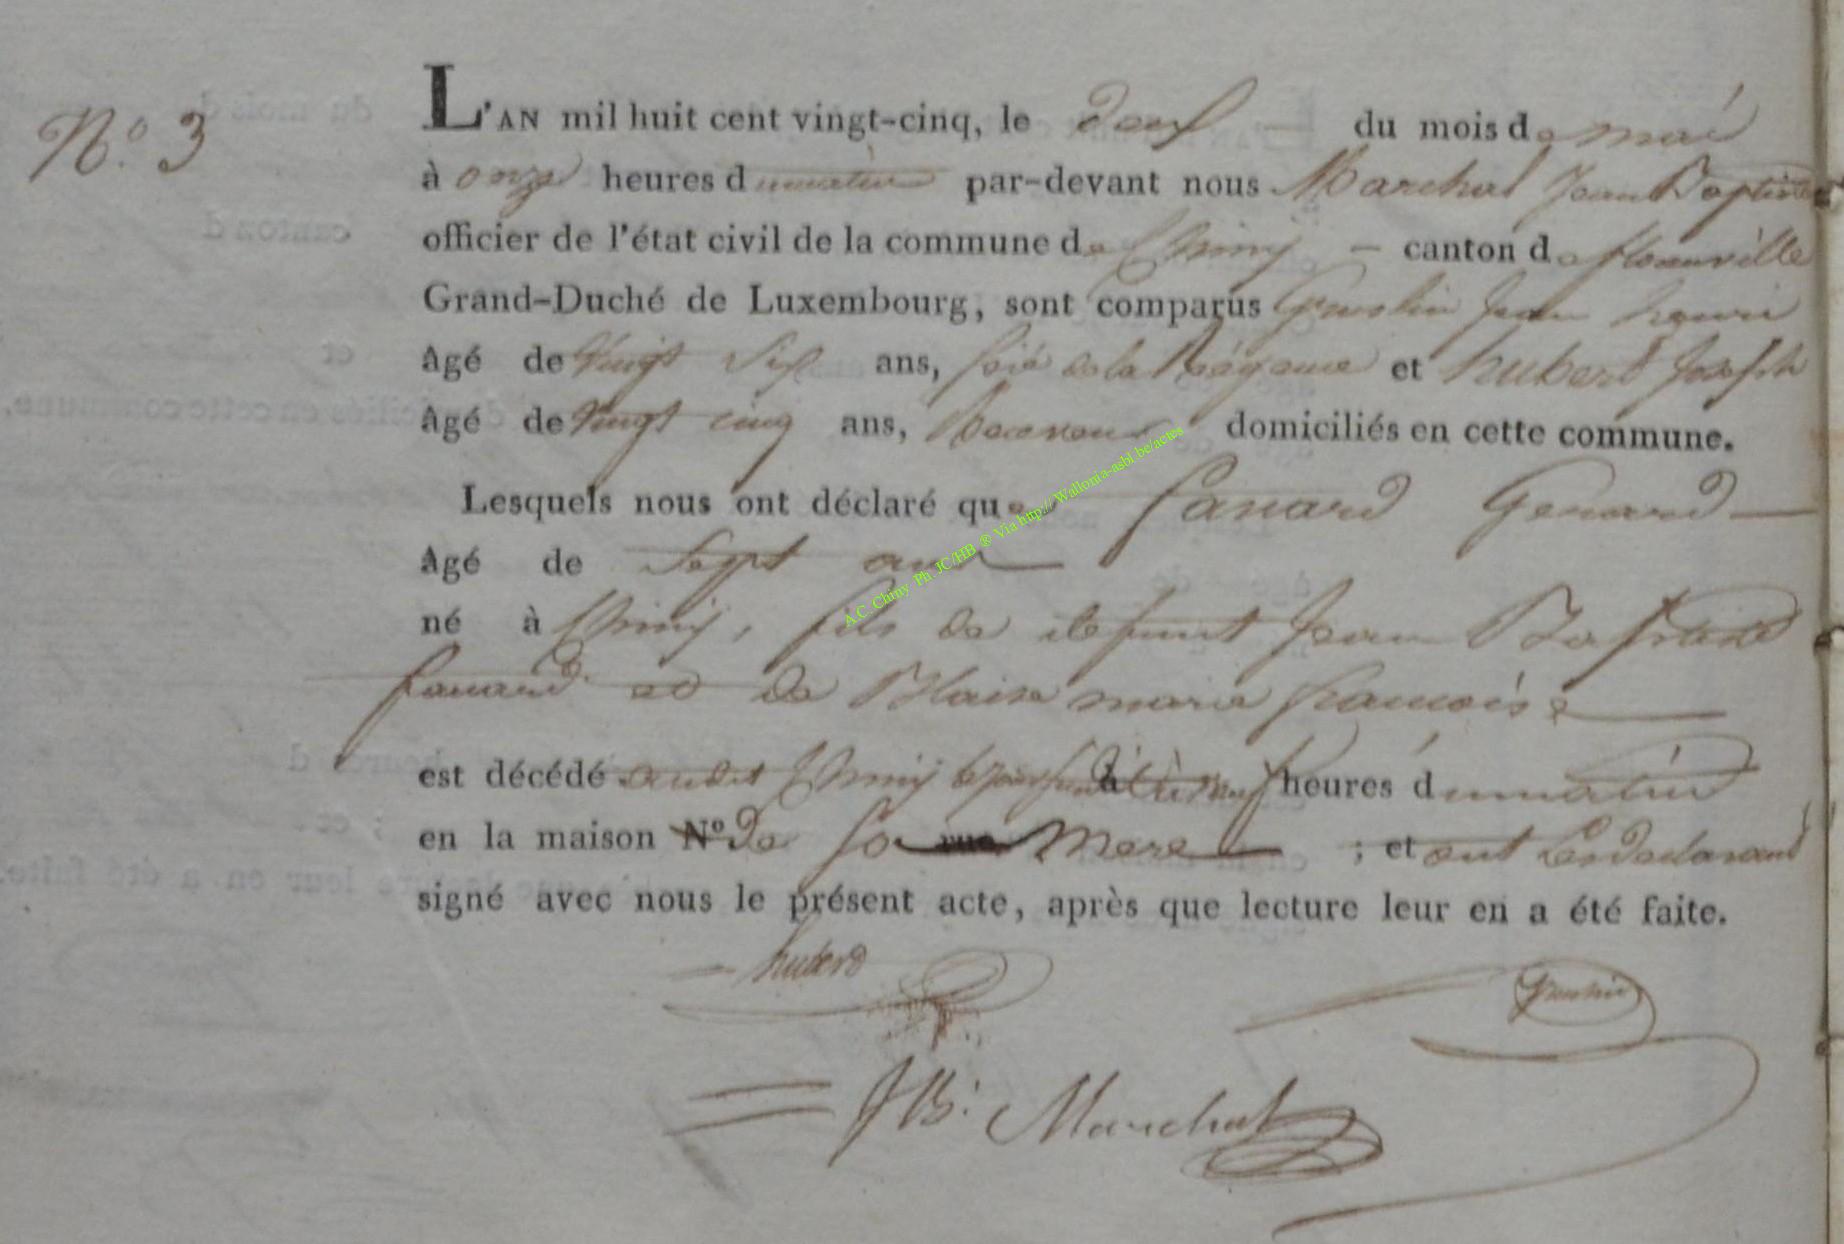 N.° 3
L'AN mil huit cent vingt-cinq, le deux du mois de mai
à onze heures du matin par-devant nous Marchal Jean Baptiste
officier de l'état civil de la commune de Chiny canton de florenville
Grand-Duché de Luxembourg, sont comparus Jean henri
âgé de Vingt Six ans, de la Régence et hubert Joseph
âgé de Vingt cinq ans, domiciliés en cette commune.
Lesquels nous ont déclaré que fanard Gerard
âgé de Sept ans
né à Chiny, fils de defunt Jean Baptiste
fanard et de Blaise marie francoise
est décédé audit Chiny à neuf heures du matin
en la maison N° de Sa rue Mere ; et ont Les declarant
signé avec nous le présent acte, après que lecture leur en a été faite.
huberd
JB. Marchal
A.C. Chiny Ph. JC/HB ® Via http://Wallonia-asbl.be/actes